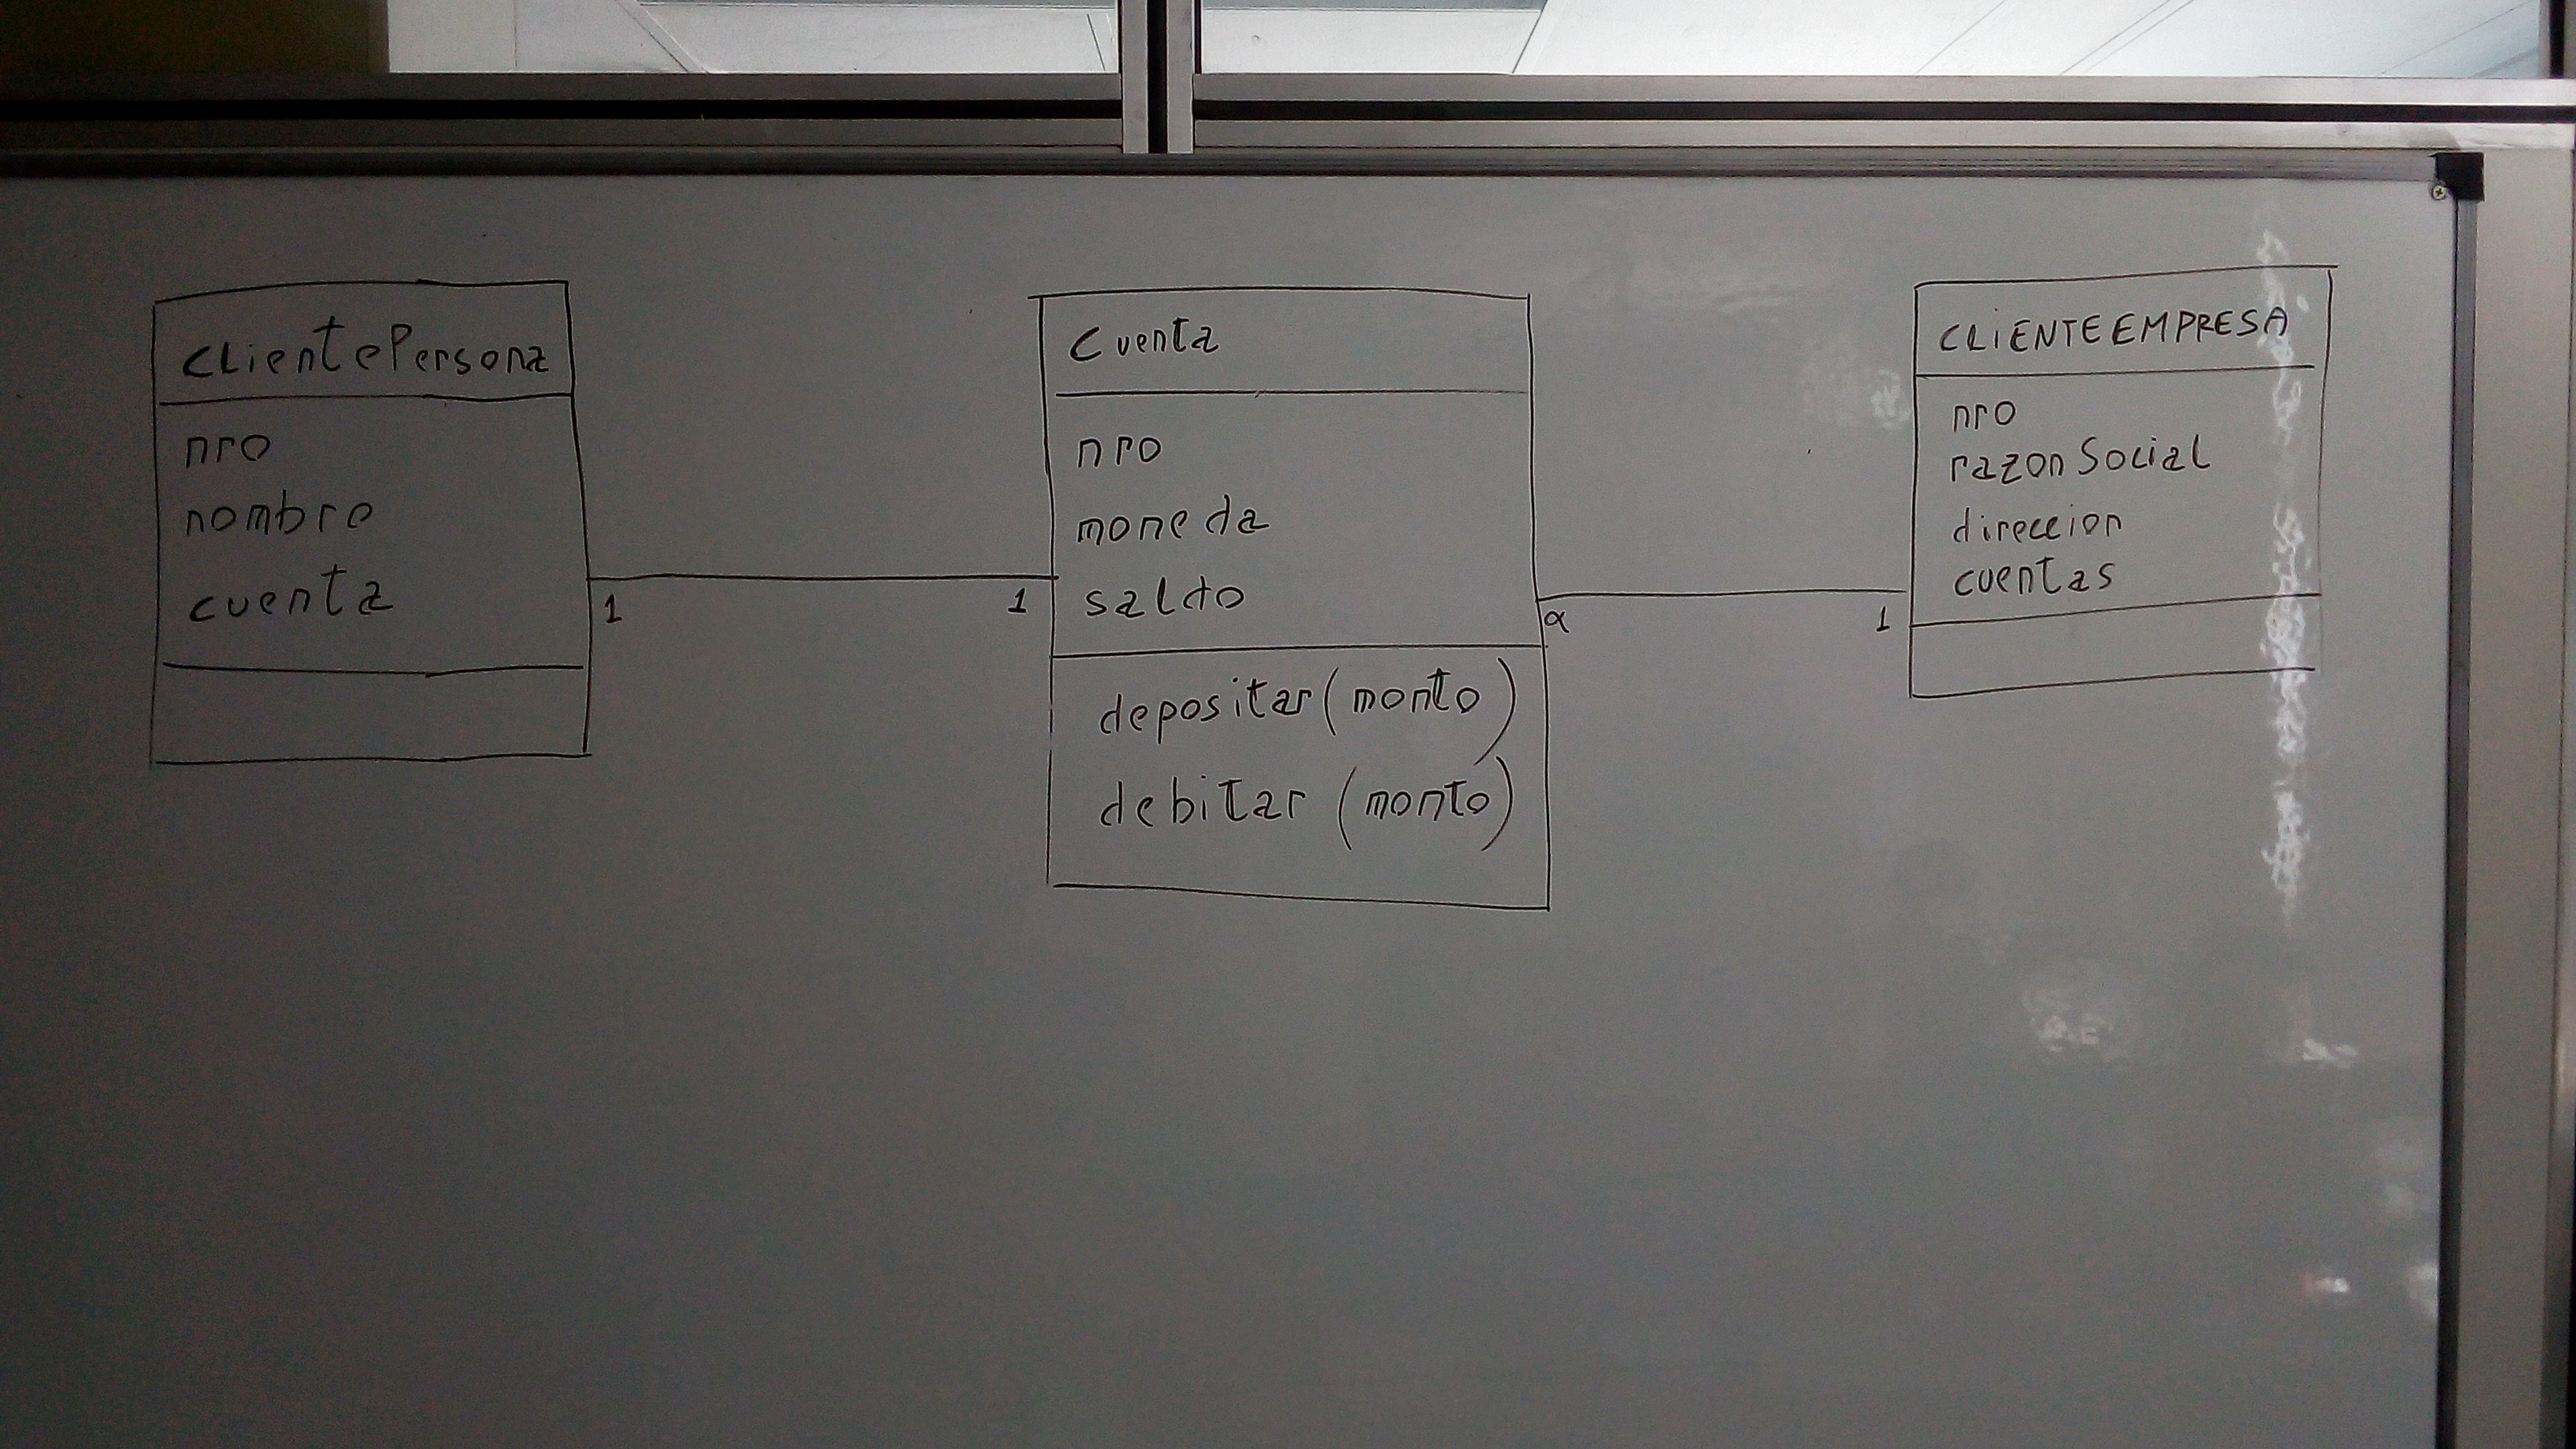 ClientePersona
nro
nombre
cuenta
1
1
Cuenta
nro
moneda
saldo
depositar (monto)
debitar (monto)
α
1
CLiENTEEMPRESA
nro
razonSocial
direccion
cuentas